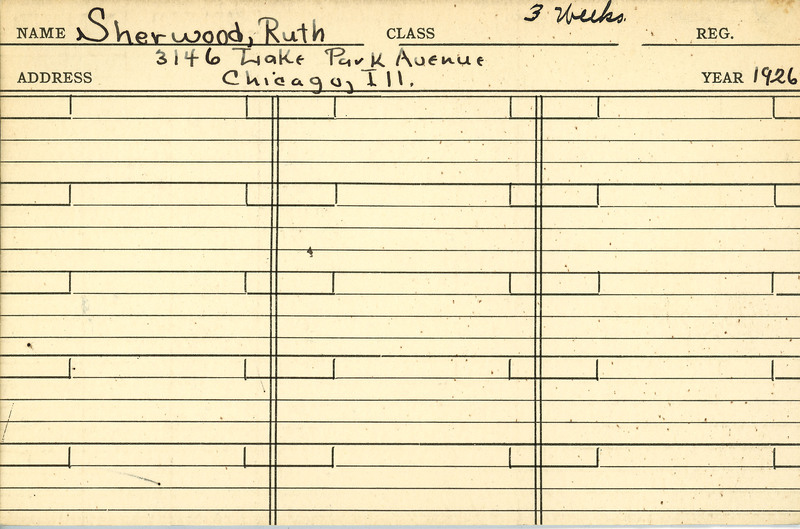 NAME Sherwood, Ruth CLASS 3 Weeks. REG.
3146 Lake Park Avenue
ADDRESS Chicago, Ill. YEAR 1926